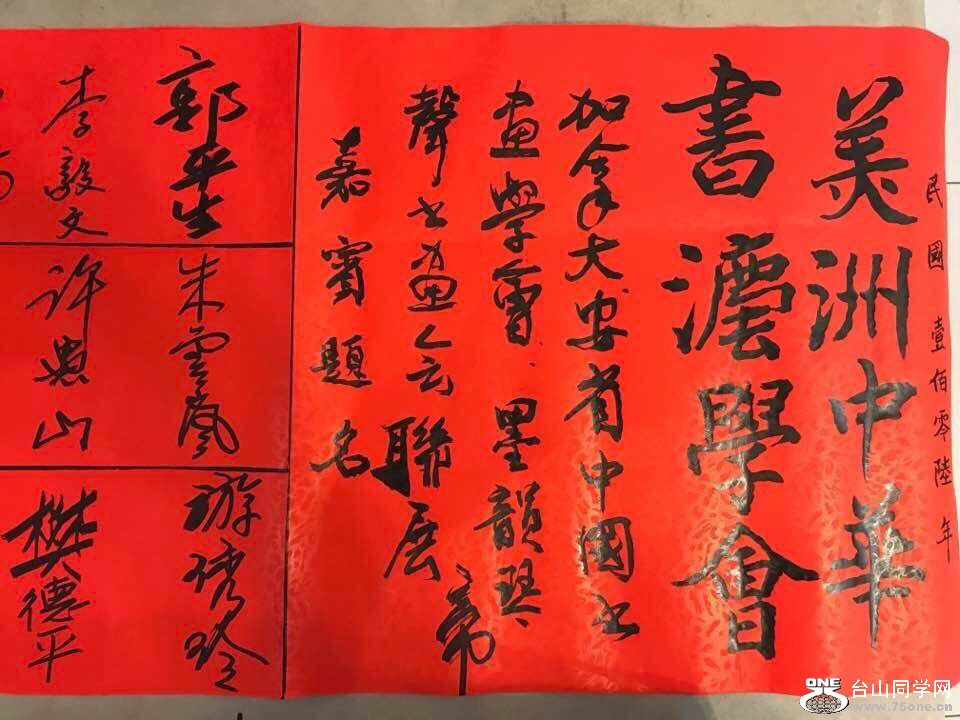 民國壹佰零陸年
美洲中華
書灋學會
加拿大安省中國书
畫學會、墨韻琴
聲书畫会聯展
嘉賓題名
郭平生
李毅文
朱雲嵐
许典山
樊德平
ONE 台山同学网
www.75one.cn